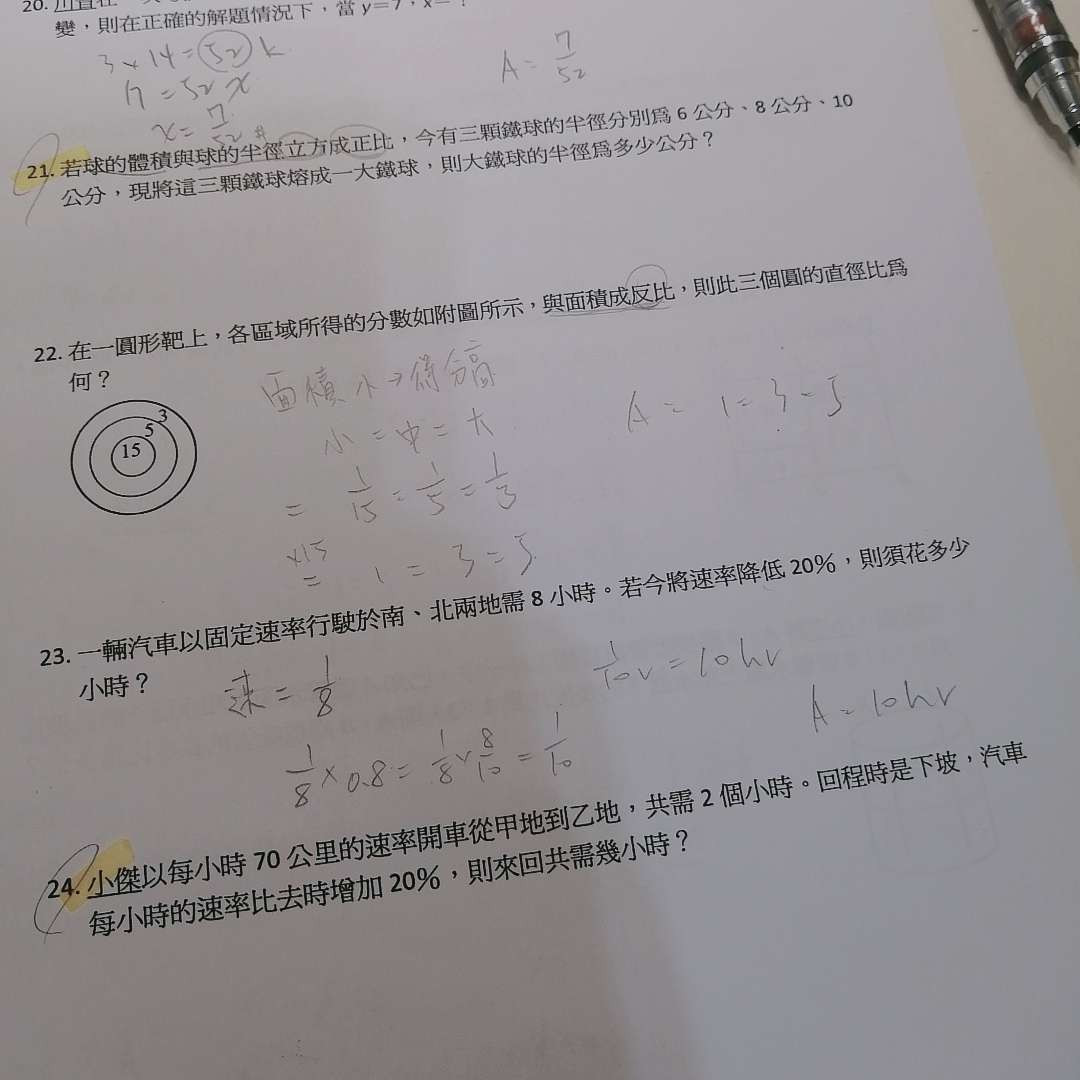 20.
變，則在正確的解題情況下，當 y=7，x=？
3×14=52k
A=7/52
7=52x
x=7/52#
21. 若球的體積與球的半徑立方成正比，今有三顆鐵球的半徑分別爲 6 公分、8 公分、10
公分，現將這三顆鐵球熔成一大鐵球，則大鐵球的半徑爲多少公分？
22. 在一圓形靶上，各區域所得的分數如附圖所示，與面積成反比，則此三個圓的直徑比爲
何？
3
5
15
面積小→得分高
小=中=大
A= 1=3=5
= 1/15=1/5=1/3
×15
= 1=3=5
23. 一輛汽車以固定速率行駛於南、北兩地需 8 小時。若今將速率降低 20%，則須花多少
小時？
速=1/8
1/10v=10hr
1/8×0.8=1/8×8/10=1/10
A=10hr
24. 小傑以每小時 70 公里的速率開車從甲地到乙地，共需 2 個小時。回程時是下坡，汽車
每小時的速率比去時增加 20%，則來回共需幾小時？